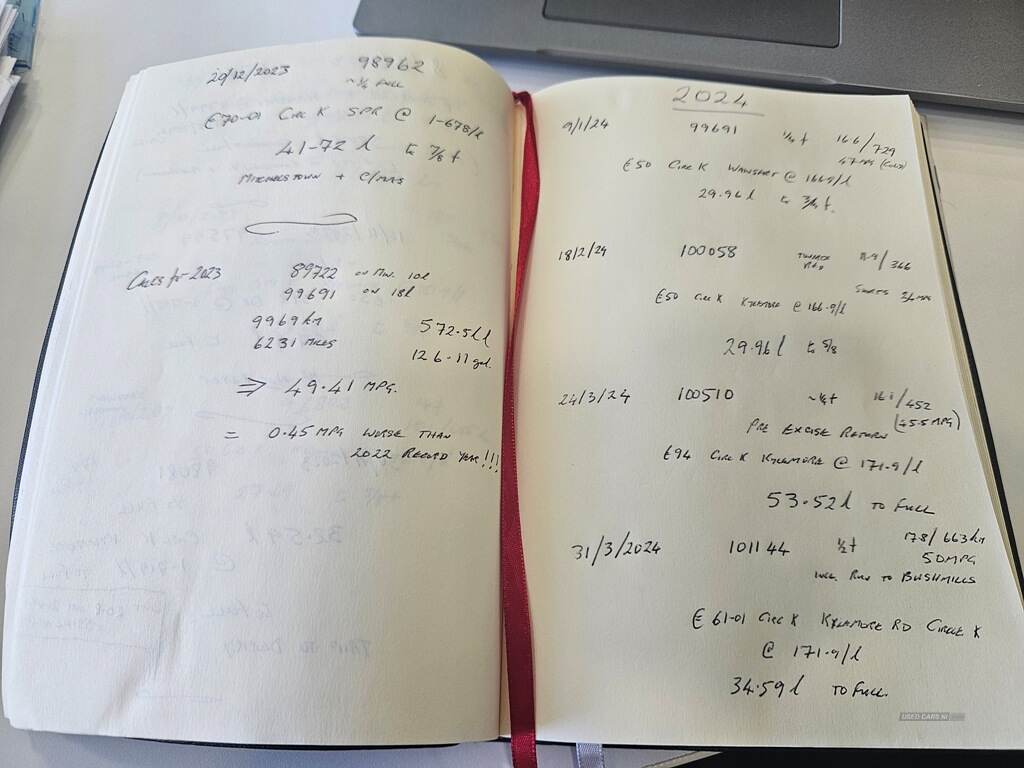 29/12/2023 98962
~¼ FULL
€70-01 CIRC K SPR @ 1-678/l
41-72 l to 7/8 f
MITCHELSTOWN + C/MAS
CALCS for 2023 89722 ON MN. 10l
99691 ON 18l
9969 KM 572.51l
6231 MILES 126.11 gal.
⇒ 49.41 MPG.
= 0.45 MPG WORSE THAN
2022 RECORD YEAR!!!
2024
9/1/24 99691 ¼f 16.6/729
47 MPG (COLD)
€50 CIRC K @ 166.9/l
29.96 l to ¾ f.
18/2/24 100058 /366
€50 CIRC K KYLEMORE @ 166.9/l
29.96 l to 5/8
24/3/24 100510 ~¼f 16.1/452
PRE EXCISE RETURN (45.5 MPG)
€94 CIRC K KYLEMORE @ 171.9/l
53.52 l TO FULL
31/3/2024 101144 ½f 17.8/663 km
50MPG
INCL. RUN TO BUSHMILLS
€61-01 CIRC K KYLEMORE RD CIRCLE K
@ 171.9/l
34.59 l TO FULL.
USED CARS NI